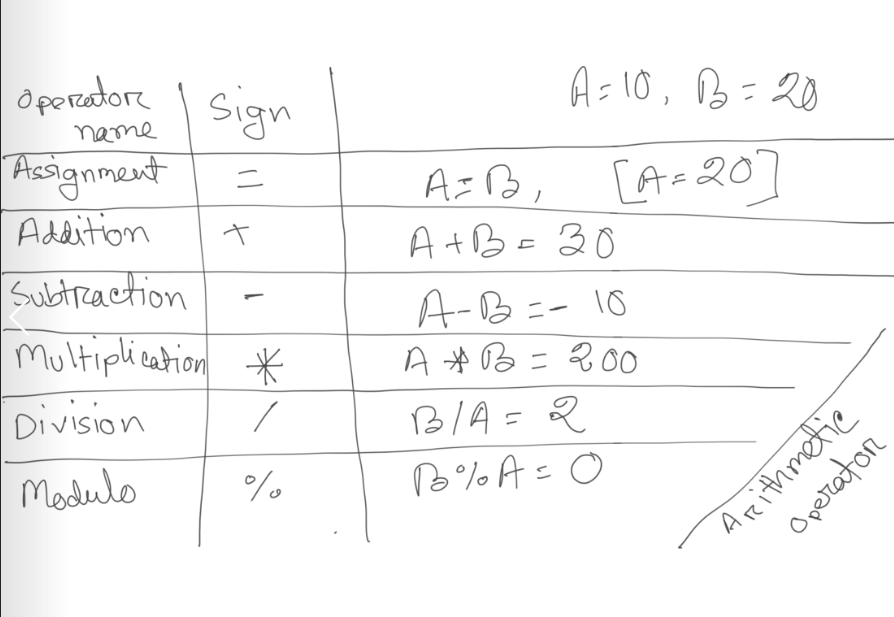 Operator name | Sign | A=10, B=20
Assignment | = | A=B, [A=20]
Addition | + | A+B = 30
Subtraction | - | A-B = - 10
Multiplication | * | A * B = 200
Division | / | B/A = 2
Modulo | % | B%A = 0
Arithmetic
Operator